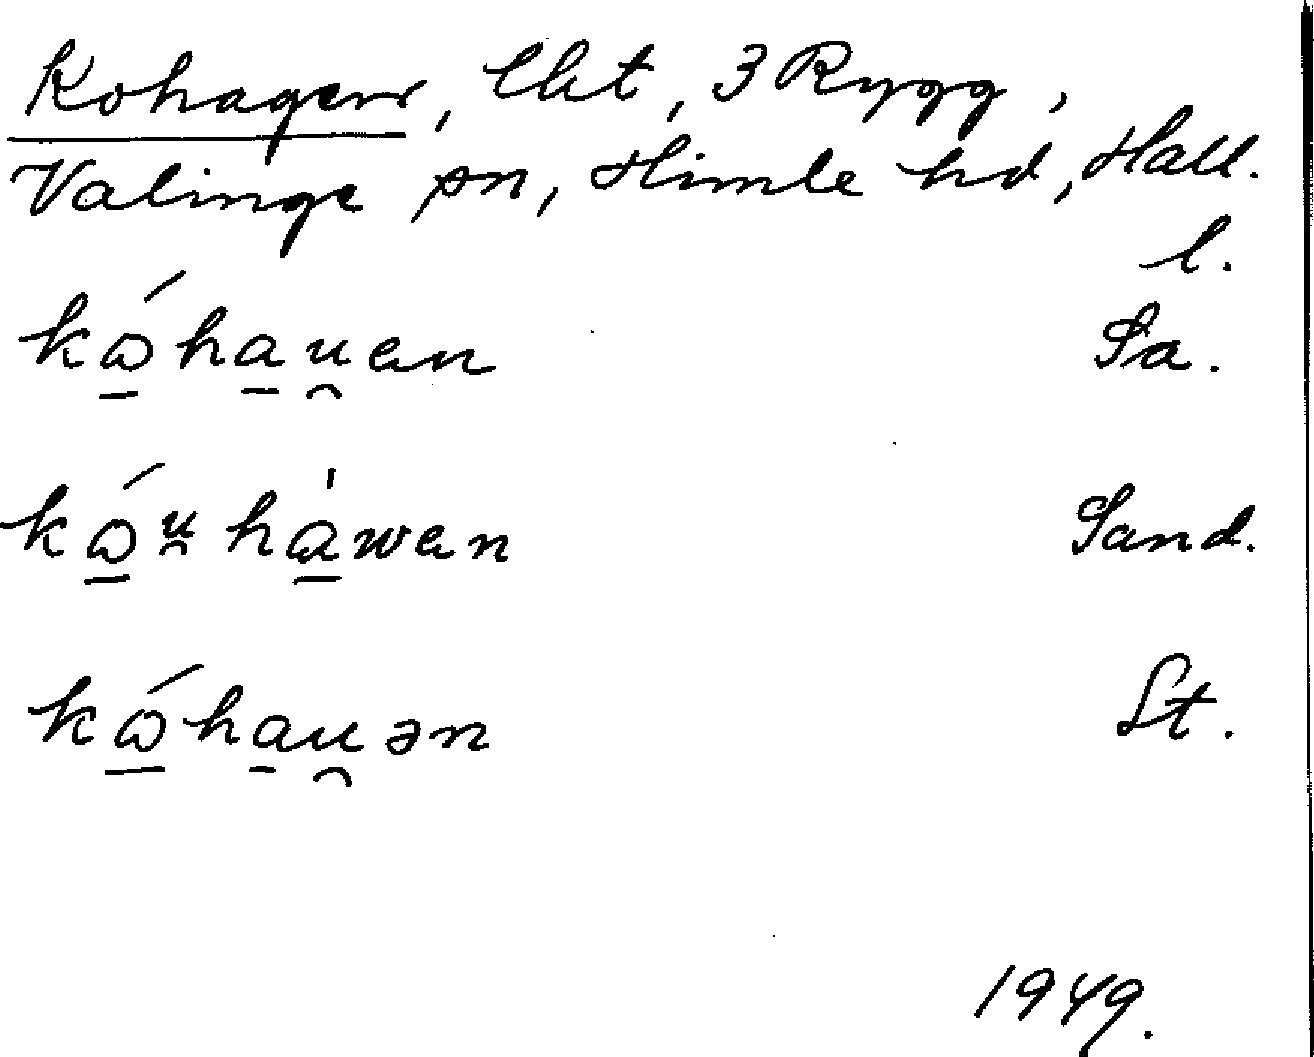 Kohagen, lht, 3 Rygg,
Valinge sn, Himle hd, Hall.
l.
kώ̱ha̱u̯en Sa.
kώ̱ᵘ̯ha̱̍wen Sand.
kώ̱ha̱u̯ən St.
1949.